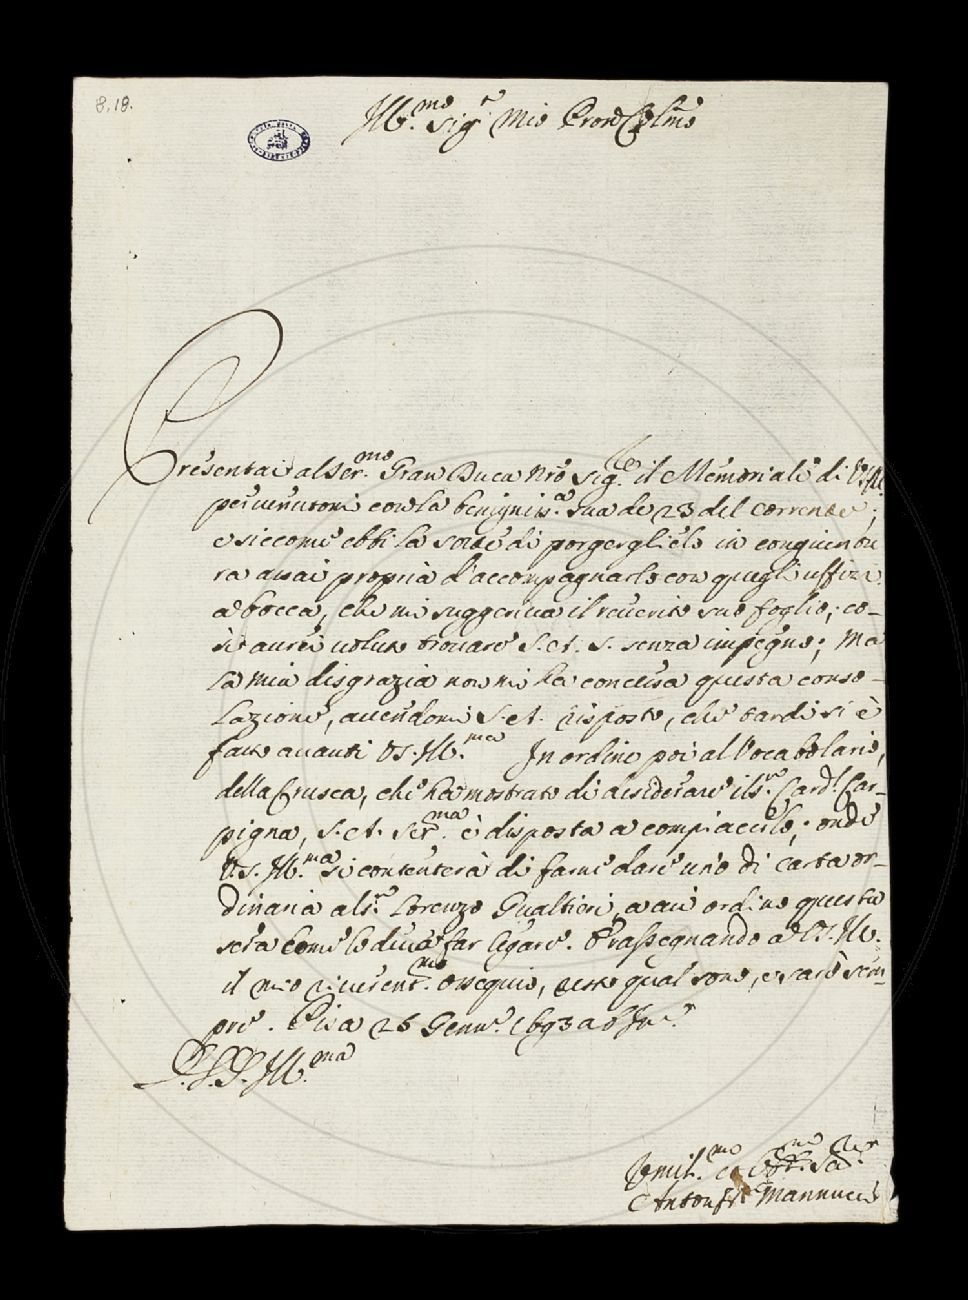 8.18.
Ill.mo Sig.r Mio Pron Col.mo
Presentai al Ser.mo Gran Duca Nro Sig.re il Memoriale di VS Ill.
pervenutomi con la benigniss.a sua de 23 del corrente;
e siccome ebbi la sorte di porgerglielo in congiuntu
ra assai propria d'accompagnarlo con quegli uffizi
a bocca, che mi suggeriva il riverito suo foglio; co-
sì aurei voluto trovare S. A. S. senza impegno; Ma
la mia disgrazia non mi ha concessa questa conso-
lazione, avendomi S. A. risposto, che tardi si è
fatto avanti VS. Ill.ma In ordine poi al Vocabolario,
della Crusca, che ha mostrato di desiderare il S.r Card.l Car-
pigna, S. A. Ser.ma è disposta a compiacerlo; onde
VS. Ill.ma si contenterà di farne dare uno di carta or-
dinaria al S.r Lorenzo Gualtieri, a cui ordino questa
sera come lo deva far legare. E rassegnando a VS. Ill.
il mio riverent.mo ossequio, resto qual sono, e sarò sem-
pre. Pisa 25 Genn.o 1693 ab Inc.e
D. V. S. Ill.ma
Vmil.mo et Obb.mo Ser.re
Antonfr Mannucci